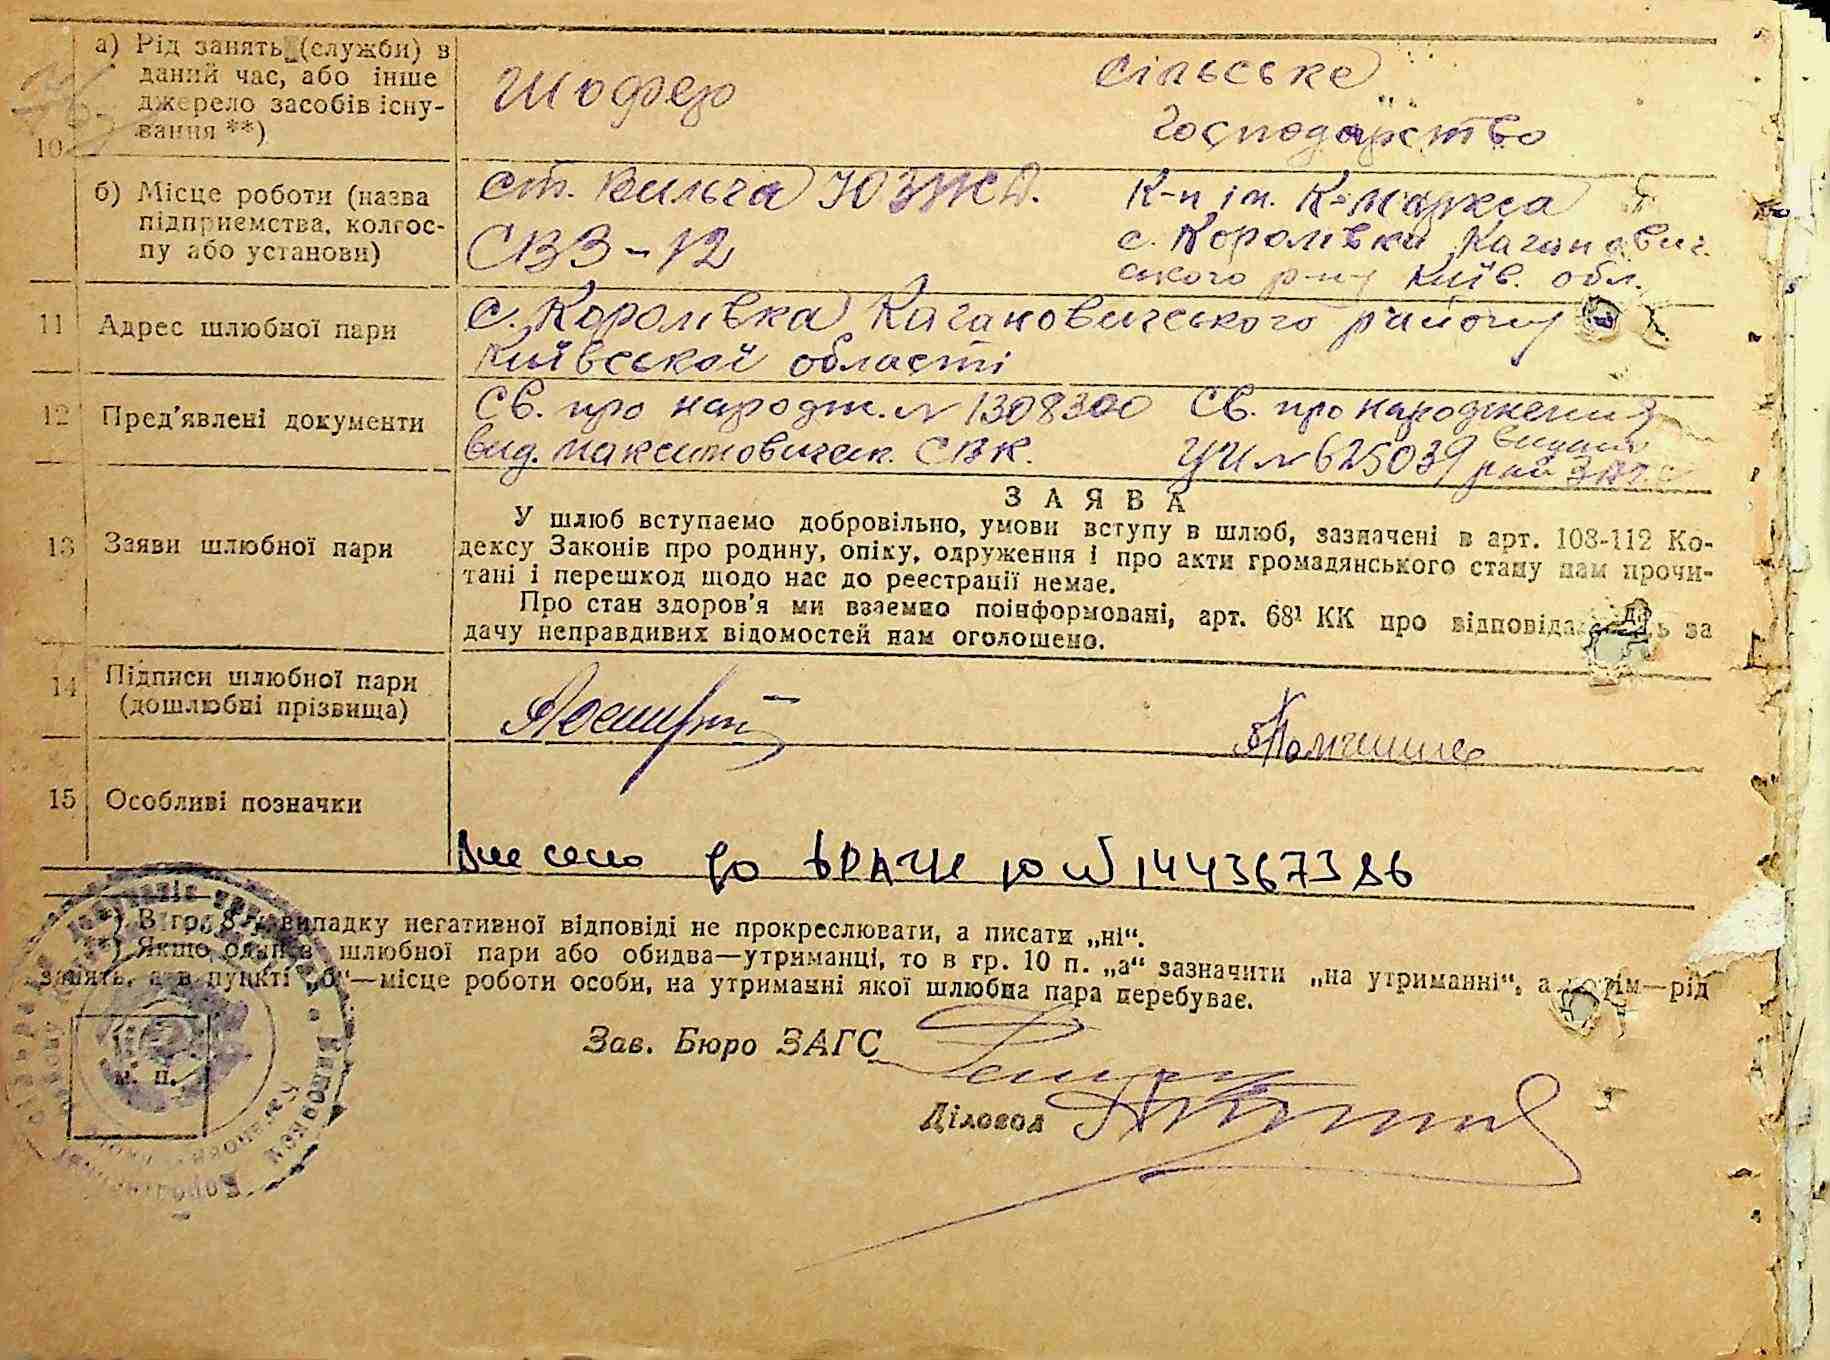 10 а) Рід занять (служби) в
даний час, або інше
джерело засобів існу-
вання **)
Шофер
сільське
господарство
б) Місце роботи (назва
підприємства, колгос-
пу або установи)
ст. Вильча ЮЗЖД.
СВЗ-12
К-п ім. К-Маркса
с. Королівка Каганович.
ського р-ну Київ. обл.
11 Адрес шлюбної пари
с. Королівка Кагановичського району
Київської області
12 Пред'явлені документи
Св. про народж. № 1308300
вид. Максимовичськ. СВК.
Св. про народження
№ 625039 видано
рай ЗАГС
13 Заяви шлюбної пари
ЗАЯВА
У шлюб вступаємо добровільно, умови вступу в шлюб, зазначені в арт. 108-112 Ко-
дексу Законів про родину, опіку, одруження і про акти громадянського стану нам прочи-
тані і перешкод щодо нас до реєстрації немає.
Про стан здоров'я ми взаємно поінформовані, арт. 68¹ КК про відповідальність за
дачу неправдивих відомостей нам оголошено.
14 Підписи шлюбної пари
(дошлюбні прізвища)
15 Особливі позначки
Внесено до ДРАЦС
*) В гр. 8 у випадку негативної відповіді не прокреслювати, а писати „ні“.
**) Якщо один з шлюбної пари або обидва—утриманці, то в гр. 10 п. „а“ зазначити „на утриманні“, а потім—рід
занять, а в пункті „б“—місце роботи особи, на утриманні якої шлюбна пара перебуває.
Зав. Бюро ЗАГС
Діловод
м. п.